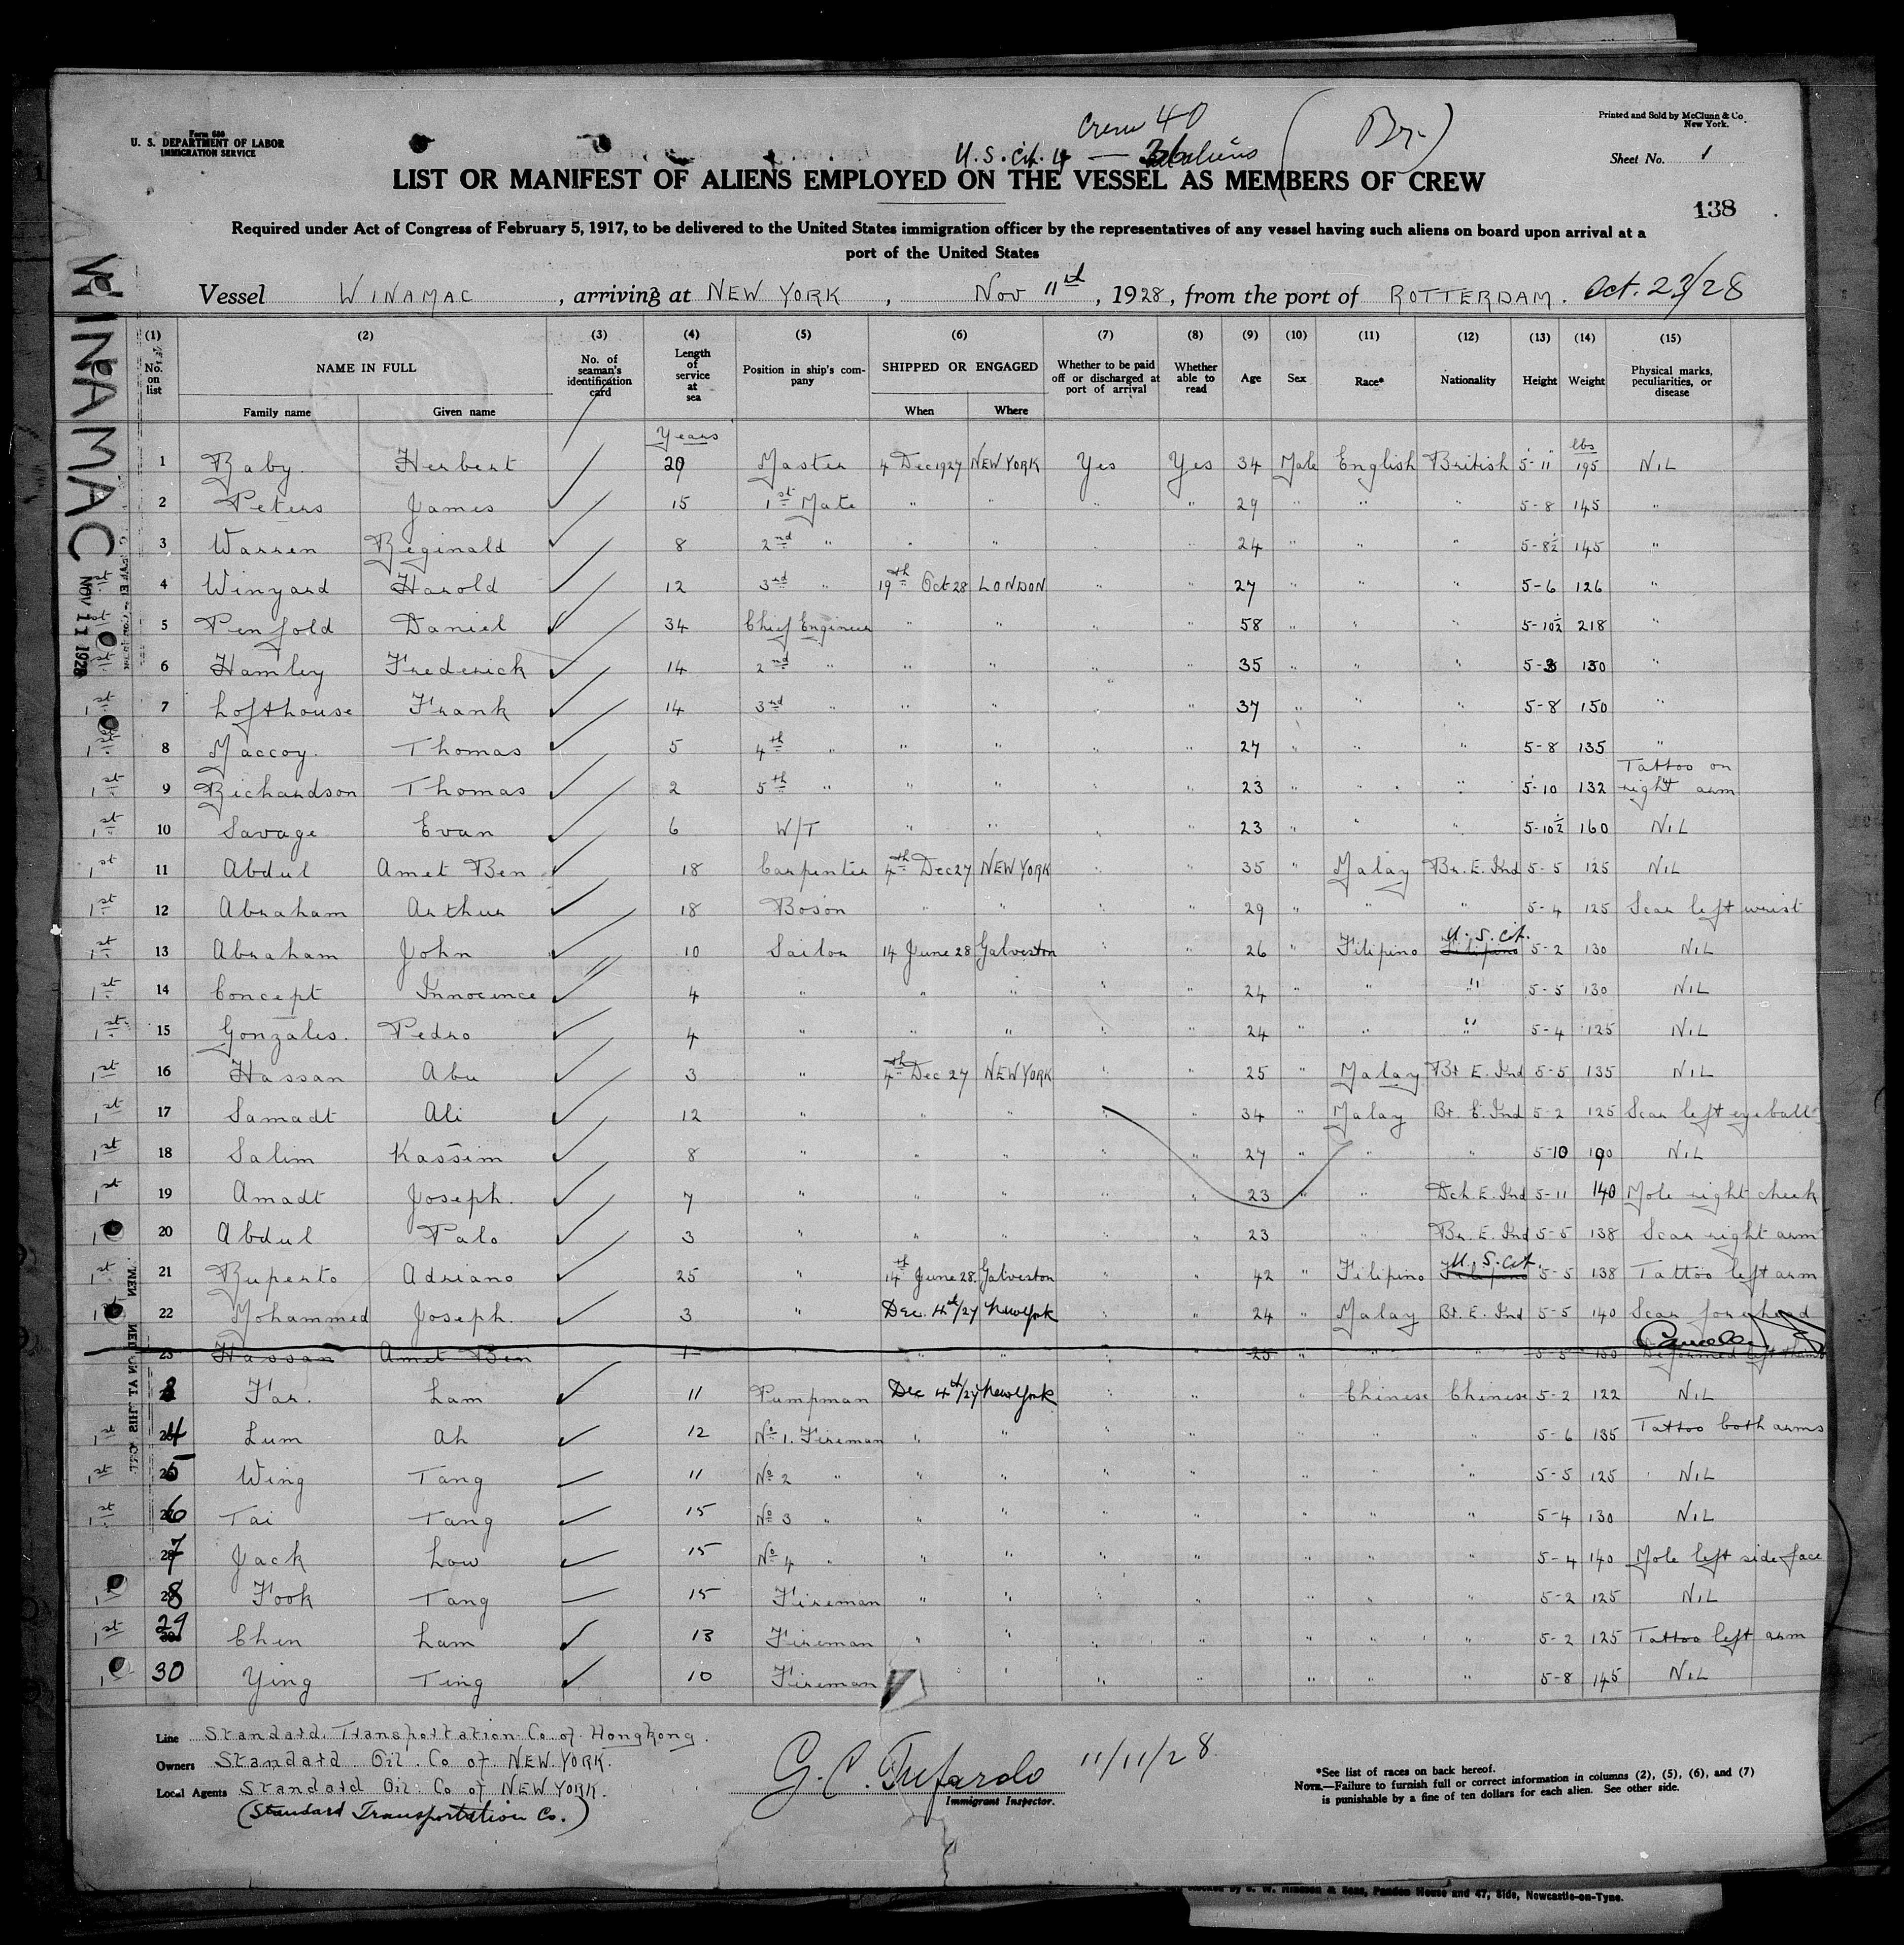 Form 680
U. S. DEPARTMENT OF LABOR
IMMIGRATION SERVICE
Crew 40
U.S. cit. 4 — 36 aliens
(Br.)
Printed and Sold by McClunn & Co.
New York.
Sheet No. 1
LIST OR MANIFEST OF ALIENS EMPLOYED ON THE VESSEL AS MEMBERS OF CREW
138
Required under Act of Congress of February 5, 1917, to be delivered to the United States immigration officer by the representatives of any vessel having such aliens on board upon arrival at a
port of the United States
Vessel WINAMAC, arriving at NEW YORK, Nov 11th, 1928, from the port of ROTTERDAM. Oct. 23/28
WINAMAC
NOV 11 1928
(1) (2) (3) (4) (5) (6) (7) (8) (9) (10) (11) (12) (13) (14) (15)
No. on list NAME IN FULL No. of seaman's identification card Length of service at sea Position in ship's company SHIPPED OR ENGAGED Whether to be paid off or discharged at port of arrival Whether able to read Age Sex Race* Nationality Height Weight Physical marks, peculiarities, or disease
Family name Given name When Where
Years lbs
1 Raby. Herbert 20 Master 4 Dec 1927 NEW YORK Yes Yes 34 Male English British 5-11 195 NIL
2 Peters James 15 1st Mate " " " " 29 " " " 5-8 145 "
3 Warren Reginald 8 2nd " " " " " 24 " " " 5-8½ 145 "
4 Winyard Harold 12 3rd " 19th Oct 28 LONDON " " 27 " " " 5-6 126 "
5 Penfold Daniel 34 Chief Engineer " " " " 58 " " " 5-10½ 218 "
6 Hamley Frederick 14 2nd " " " " " 35 " " " 5-3 130 "
1st 7 Lofthouse Frank 14 3rd " " " " " 37 " " " 5-8 150 "
1st 8 Maccoy. Thomas 5 4th " " " " " 27 " " " 5-8 135 "
1st 9 Richardson Thomas 2 5th " " " " " 23 " " " 5-10 132 Tattoo on right arm
1st 10 Savage Evan 6 W/T " " " " 23 " " " 5-10½ 160 NIL
1st 11 Abdul Amet Ben 18 Carpenter 4th Dec 27 NEW YORK " " 35 " Malay Br. E. Ind 5-5 125 NIL
1st 12 Abraham Arthur 18 Boson " " " " 29 " " " 5-4 125 Scar left wrist
1st 13 Abraham John 10 Sailor 14 June 28 Galveston " " 26 " Filipino Filipino U.S. Cit. 5-2 130 NIL
1st 14 Concept Innocence 4 " " " " " 24 " " " 5-5 130 NIL
1st 15 Gonzales. Pedro 4 " " " " " 24 " " " 5-4 125 NIL
1st 16 Hassan Abu 3 " 4th Dec 27 NEW YORK " " 25 " Malay Br E. Ind 5-5 135 NIL
1st 17 Samadt Ali 12 " " " " " 34 " Malay Br. E. Ind 5-2 125 Scar left eyeball
1st 18 Salim Kassim 8 " " " " " 27 " " " 5-10 190 NIL
1st 19 Amadt Joseph. 7 " " " " " 23 " " Dch. E. Ind 5-11 140 Mole right cheek
20 Abdul Palo 3 " " " " " 23 " Br. E. Ind 5-5 138 Scar right arm
1st 21 Ruperto Adriano 25 " 14th June 28. Galveston " " 42 " Filipino Filipino U.S. Cit. 5-5 138 Tattoo left arm
1st 22 Mohammed Joseph. 3 " Dec. 4th/27 New York " " 24 " Malay Br. E. Ind 5-5 140 Scar forehead
23 Hassan Amet Ben 1 " " 25 " " " 5-5 130 Deformed left thumb Cancelled
Far. Lam 11 Pumpman Dec 4th/27 New York " " " Chinese Chinese 5-2 122 NIL
1st 4 Lum Ah 12 No 1. Fireman " " " " " " " 5-6 135 Tattoo both arms
1st 5 Wing Tang 11 No 2 " " " " " " " " 5-5 125 NIL
1st 6 Tai Tang 15 No 3 " " " " " " " " 5-4 130 NIL
7 Jack Low 15 No 4 " " " " " " " " 5-4 140 Mole left side face
8 Fook Tang 15 Fireman " " " " " " " 5-2 125 NIL
1st 29 Chen Lam 13 Fireman " " " " " " " 5-2 125 Tattoo left arm
30 Ying Ting 10 Fireman " " " " " " 5-8 145 NIL
Line Standard. Transportation Co. of Hongkong.
Owners Standard Oil. Co of. NEW YORK.
Local Agents Standard Oil Co of NEW YORK.
(Standard Transportation Co.)
11/11/28
Immigrant Inspector.
*See list of races on back hereof.
NOTE.—Failure to furnish full or correct information in columns (2), (5), (6), and (7)
is punishable by a fine of ten dollars for each alien. See other side.
& Sons, Pandon House and 47, Side, Newcastle-on-Tyne.